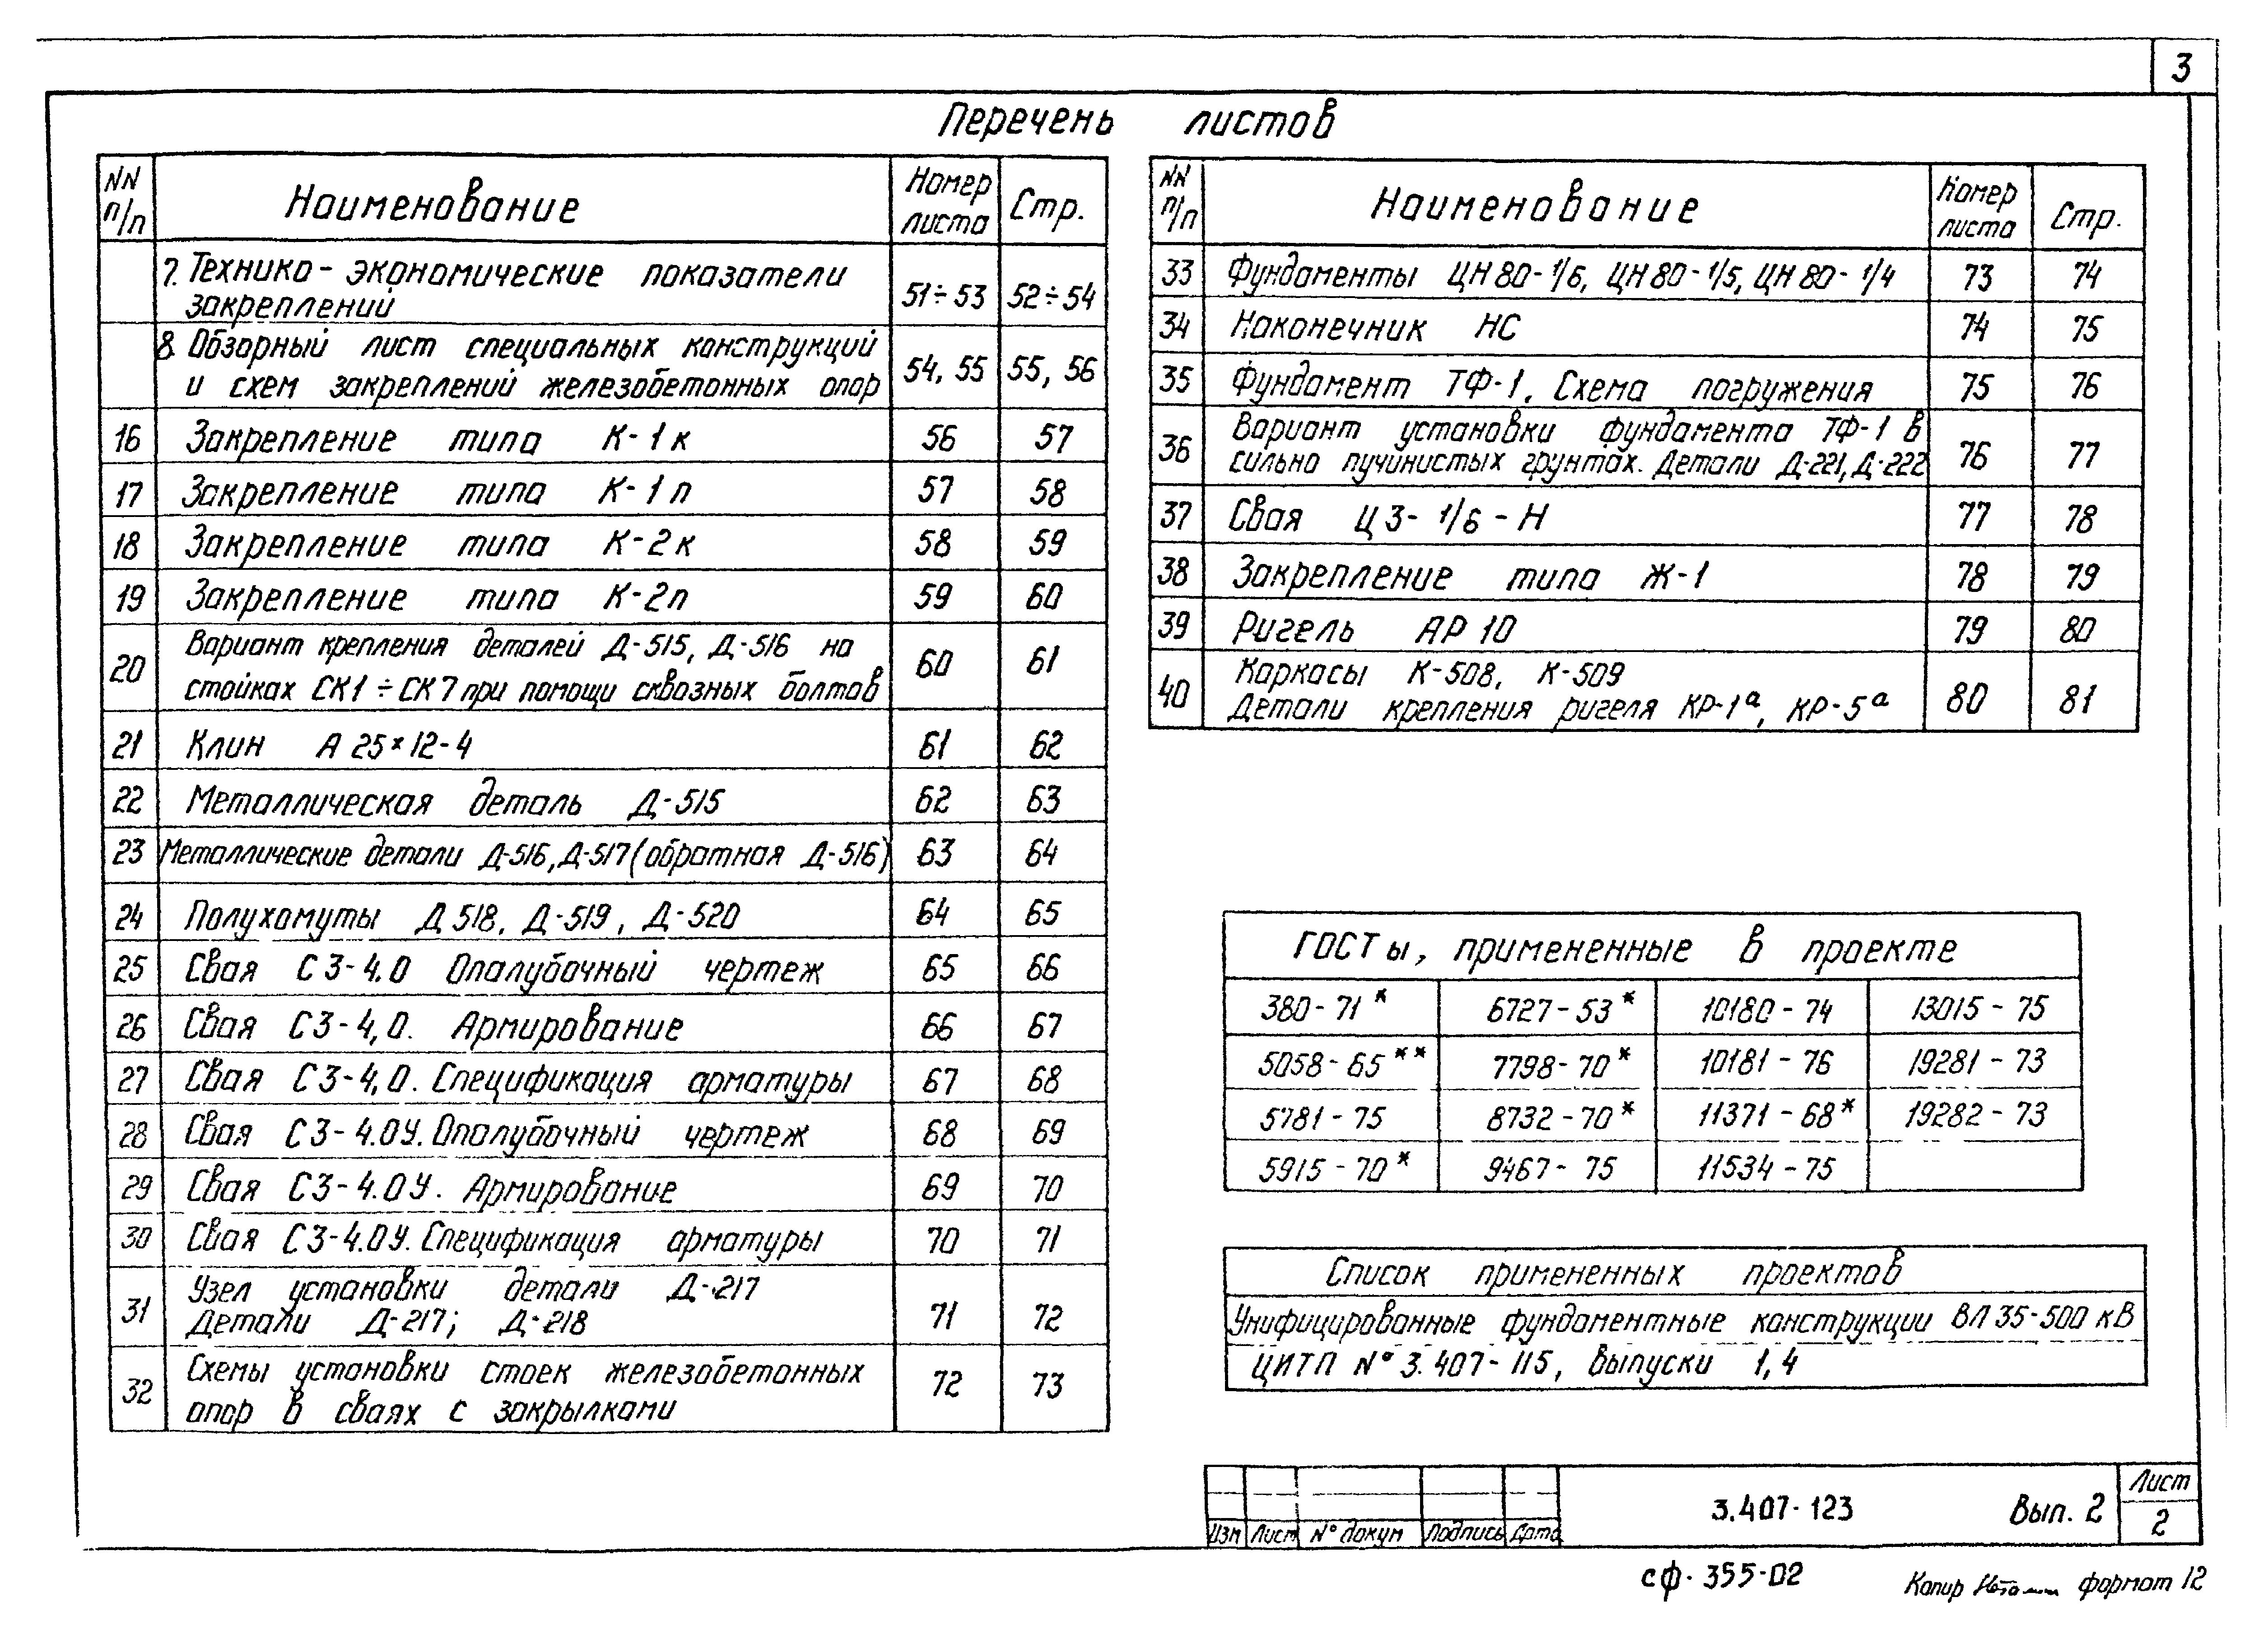 3
Перечень листов
NN п/п Наименование Номер листа Стр.
7. Технико-экономические показатели закреплений 51÷53 52÷54
8. Обзорный лист специальных конструкций и схем закреплений железобетонных опор 54, 55 55, 56
16 Закрепление типа К-1к 56 57
17 Закрепление типа К-1п 57 58
18 Закрепление типа К-2к 58 59
19 Закрепление типа К-2п 59 60
20 Вариант крепления деталей Д-515, Д-516 на стойках СК1÷СК7 при помощи сквозных болтов 60 61
21 Клин А 25×12-4 61 62
22 Металлическая деталь Д-515 62 63
23 Металлические детали Д-516, Д-517 (обратная Д-516) 63 64
24 Полухомуты Д 518, Д-519, Д-520 64 65
25 Свая С3-4.0 Опалубочный чертеж 65 66
26 Свая С3-4,0. Армирование 66 67
27 Свая С3-4,0. Спецификация арматуры 67 68
28 Свая С3-4.0У. Опалубочный чертеж 68 69
29 Свая С3-4.0У. Армирование 69 70
30 Свая С3-4.0У. Спецификация арматуры 70 71
31 Узел установки детали Д-217 Детали Д-217; Д-218 71 72
32 Схемы установки стоек железобетонных опор в сваях с закрылками 72 73
NN п/п Наименование Номер листа Стр.
33 Фундаменты ЦН80-1/6, ЦН80-1/5, ЦН80-1/4 73 74
34 Наконечник НС 74 75
35 Фундамент ТФ-1. Схема погружения 75 76
36 Вариант установки фундамента ТФ-1 в сильно пучинистых грунтах. Детали Д-221, Д-222 76 77
37 Свая Ц3-1/6-Н 77 78
38 Закрепление типа Ж-1 78 79
39 Ригель АР10 79 80
40 Каркасы К-508, К-509 Детали крепления ригеля КР-1а, КР-5а 80 81
ГОСТы, примененные в проекте
380-71* 6727-53* 10180-74 13015-75
5058-65** 7798-70* 10181-76 19281-73
5781-75 8732-70* 11371-68* 19282-73
5915-70* 9467-75 11534-75
Список примененных проектов
Унифицированные фундаментные конструкции ВЛ 35-500 кВ
ЦИТП № 3.407-115, Выпуски 1,4
3.407-123 Вып. 2 Лист 2
Изм Лист № докум Подпись Дата
сф-355-02
Копир формат 12